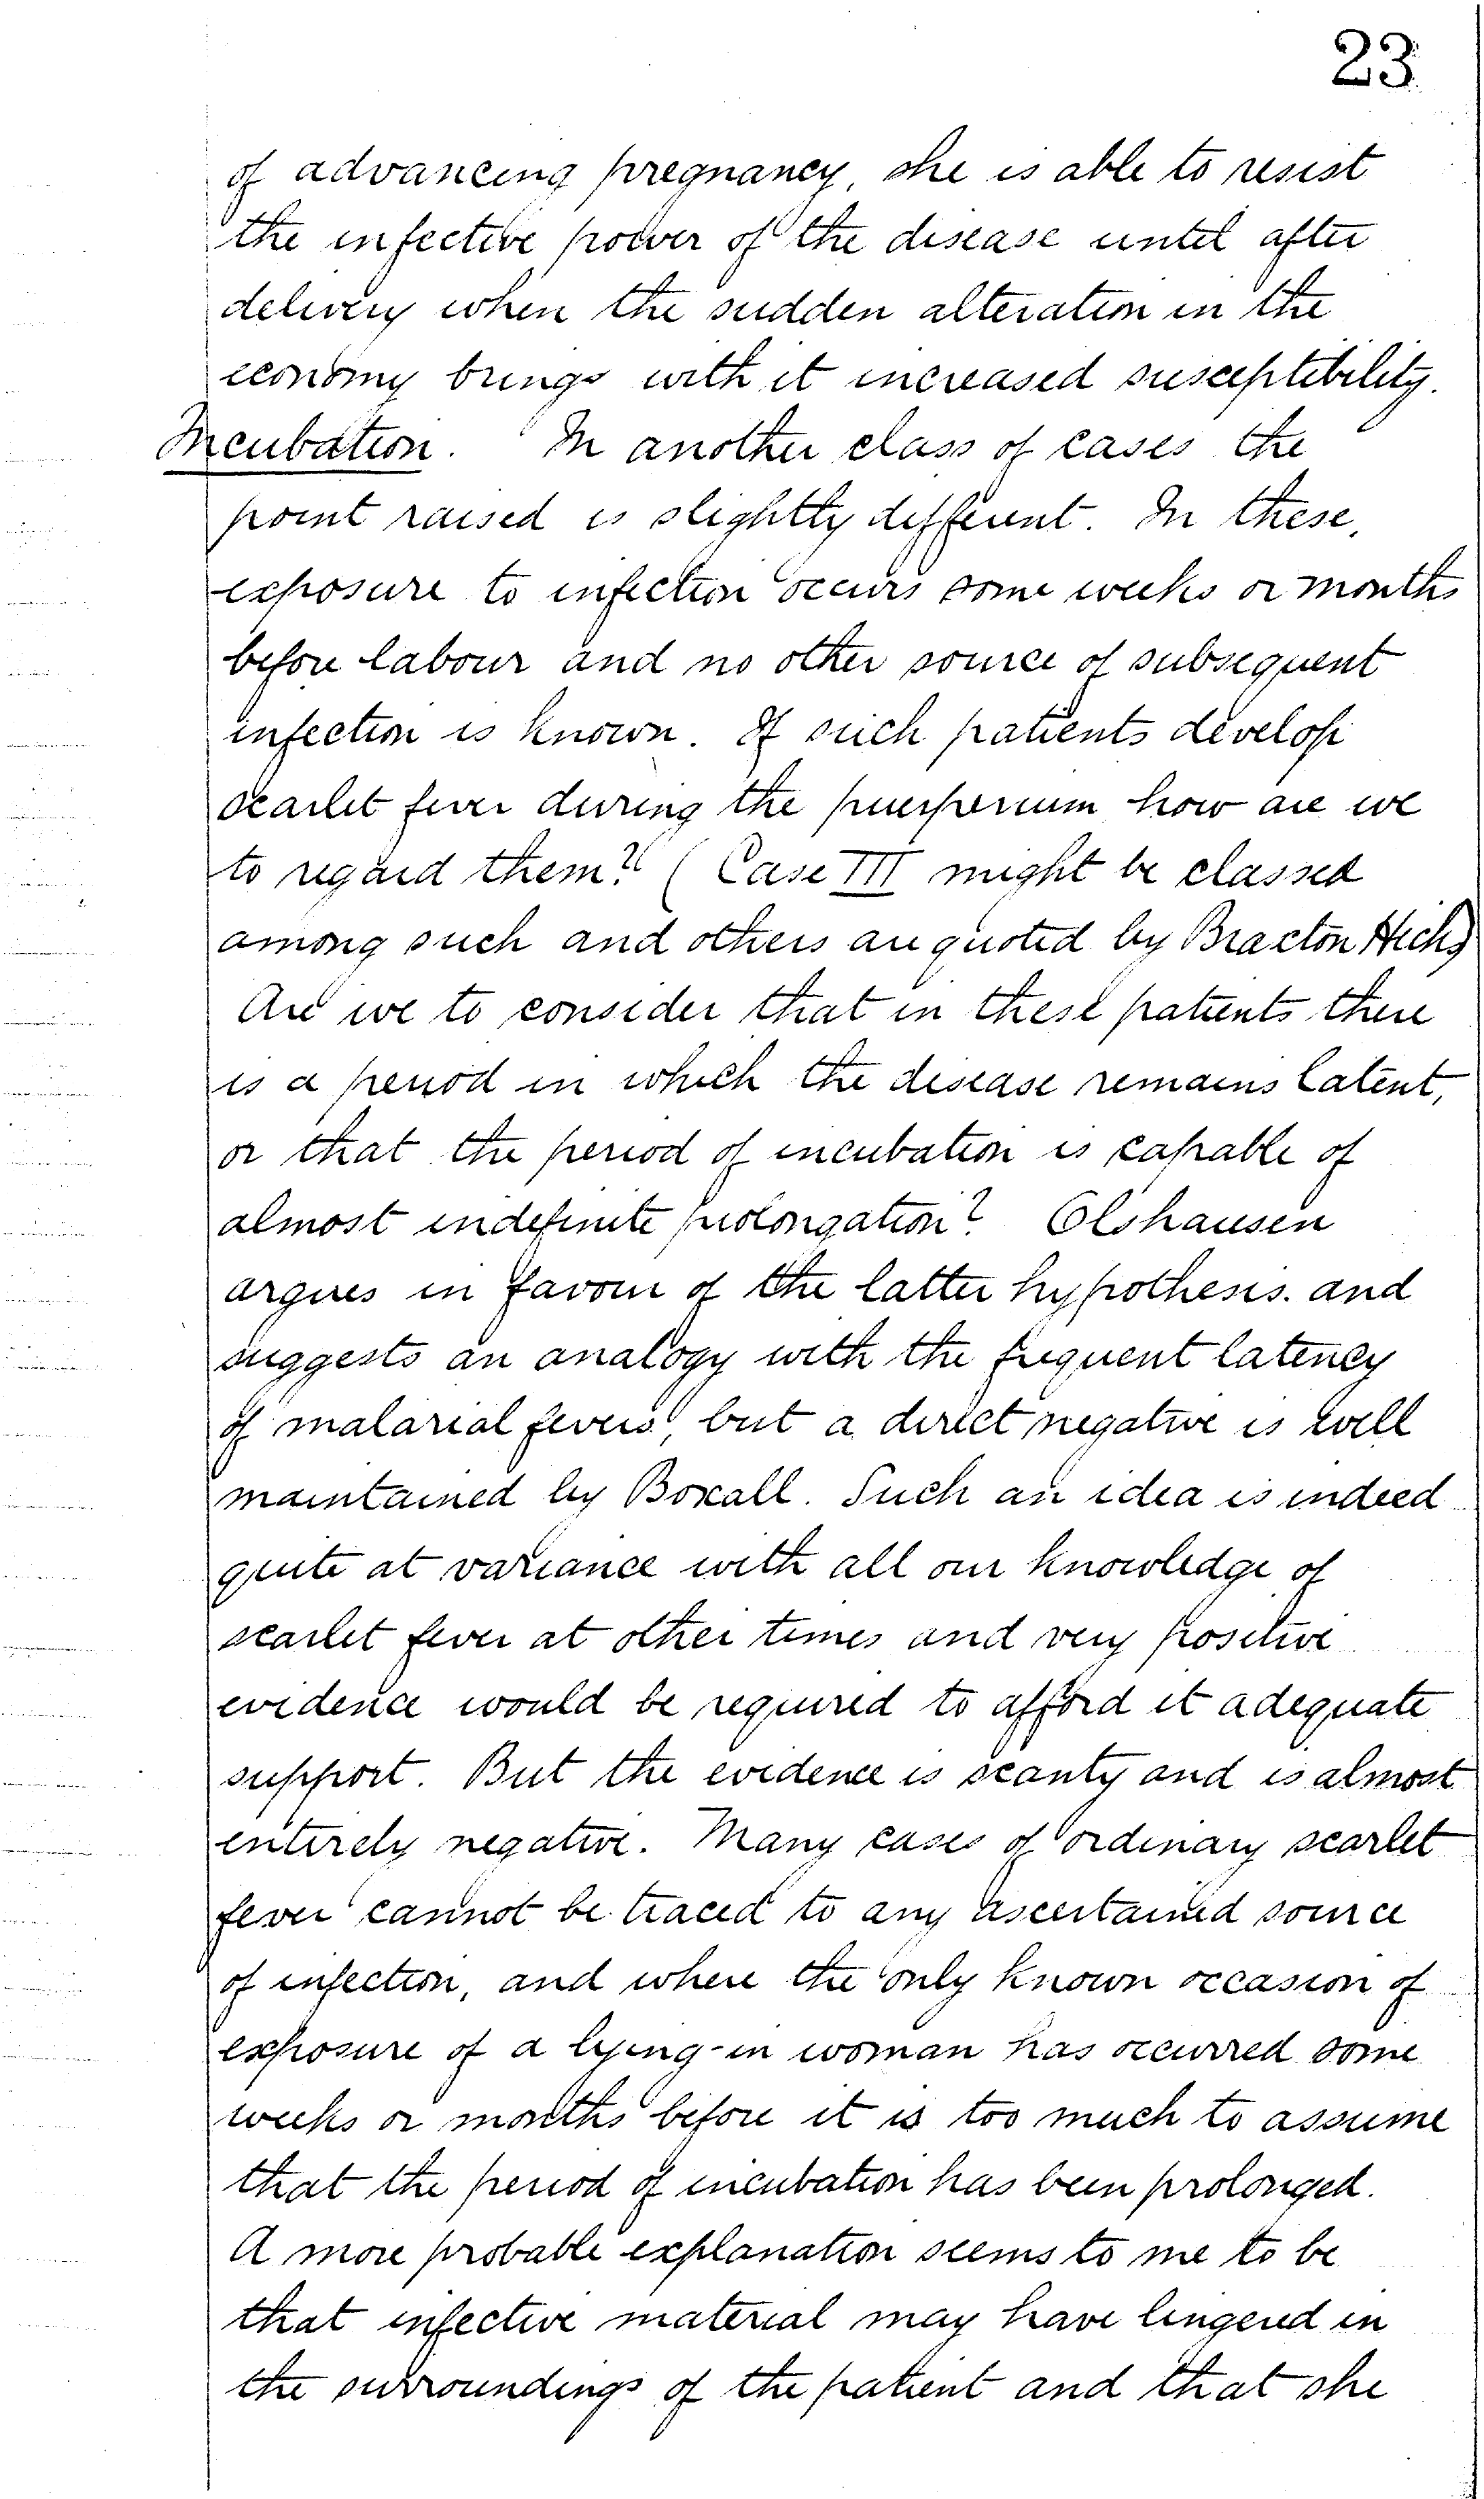 23
of advancing pregnancy, she is able to resist
the infective power of the disease until after
delivery when the sudden alteration in the
economy brings with it increased susceptibility.
Incubation. In another class of cases the
point raised is slightly different. In these,
exposure to infection occurs some weeks or months
before labour and no other source of subsequent
infection is known. If such patients develop
scarlet fever during the puerperium how are we
to regard them? (Case III might be classed
among such and others are quoted by Braxton Hicks)
Are we to consider that in these patients there
is a period in which the disease remains latent,
or that the period of incubation is capable of
almost indefinite prolongation? Olshausen
argues in favour of the latter hypothesis. and
suggests an analogy with the frequent latency
of malarial fevers, but a direct negative is well
maintained by Boxall. Such an idea is indeed
quite at variance with all our knowledge of
scarlet fever at other times and very positive
evidence would be required to afford it adequate
support. But the evidence is scanty and is almost
entirely negative. Many cases of ordinary scarlet
fever cannot be traced to any ascertained source
of infection, and where the only known occasion of
exposure of a lying-in woman has occurred some
weeks or months before it is too much to assume
that the period of incubation has been prolonged.
A more probable explanation seems to me to be
that infective material may have lingered in
the surroundings of the patient and that she